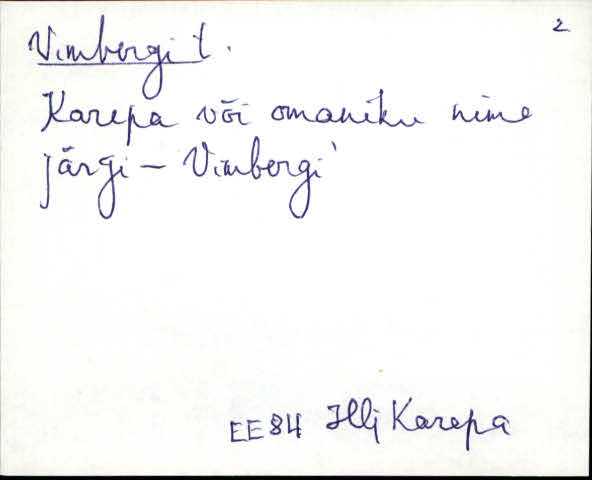 2
Vimbergi t.
Karepa või omaniku nime
järgi – Vimbergi
EE84 Hlj Karepa